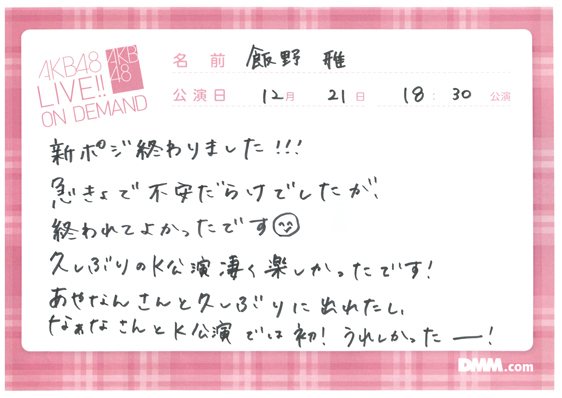 AKB48
LIVE!!
ON DEMAND
AKB
48
名前 飯野 雅
公演日 12月 21日 18:30 公演
新ポジ終わりました!!!
急きょで不安だらけでしたが、
終われてよかったです
久しぶりのK公演凄く楽しかったです!
あやなんさんと久しぶりに出れたし、
なぁなさんとK公演では初!うれしかったー!
DMM.com